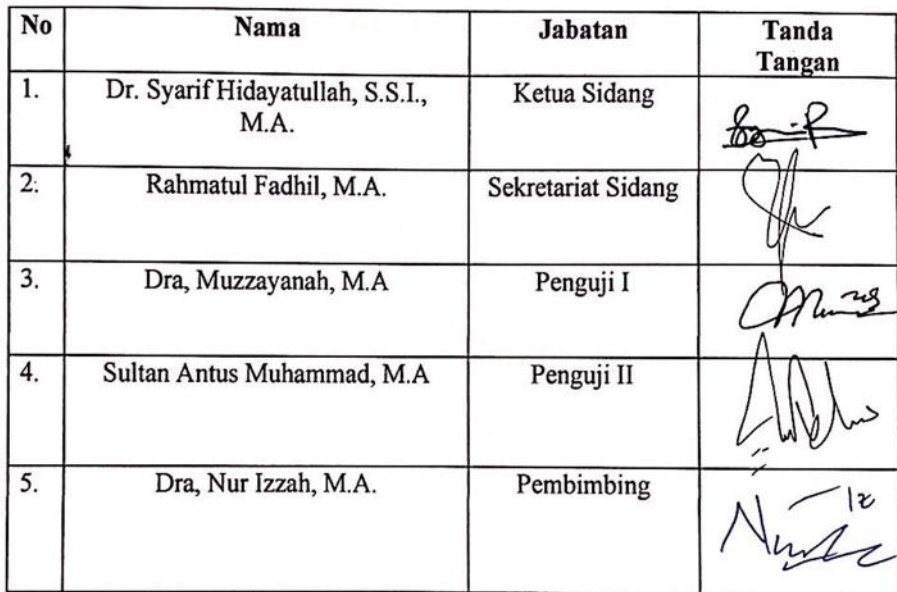 No Nama Jabatan Tanda
Tangan
1. Dr. Syarif Hidayatullah, S.S.I., Ketua Sidang
M.A.
2. Rahmatul Fadhil, M.A. Sekretariat Sidang
3. Dra, Muzzayanah, M.A Penguji I
4. Sultan Antus Muhammad, M.A Penguji II
5. Dra, Nur Izzah, M.A. Pembimbing